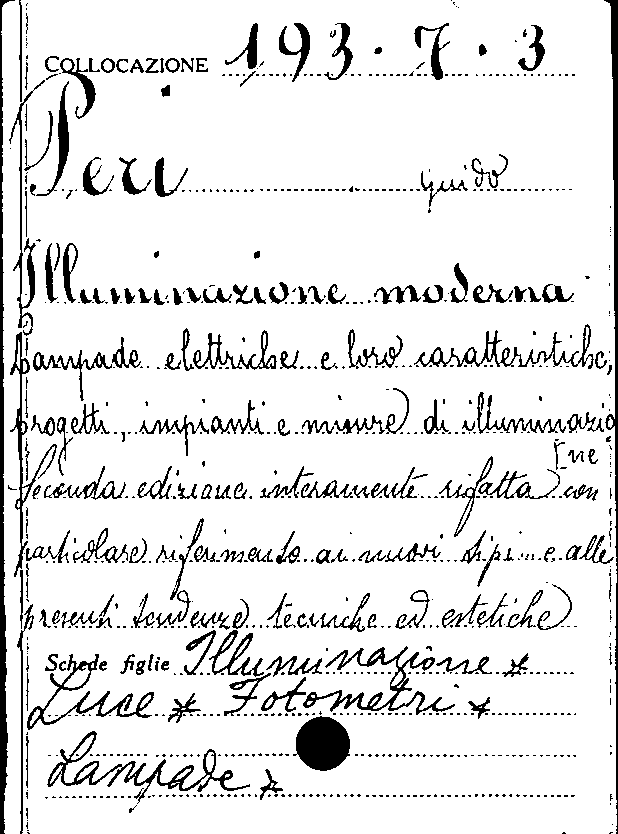 COLLOCAZIONE 193.7.3
Peri Guido
Illuminazione moderna
Lampade elettriche e loro caratteristiche,
progetti, impianti e misure di illuminazio
[ne
Seconda edizione interamente rifatta con
particolare riferimento ai nuovi tipi e alle
presenti tendenze tecniche ed estetiche
Schede figlie Illuminazione *
Luce * Fotometri *
Lampade *